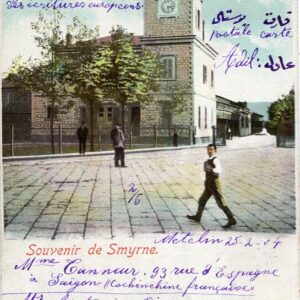 les écritures européens
قارت پوستال
postale carte
Adil: عادل
2/6
Souvenir de Smyrne.
Metelin 25-2-04
Mme Cannur. 93 rue d'Espagne
à Saïgon (Cochinchine française)